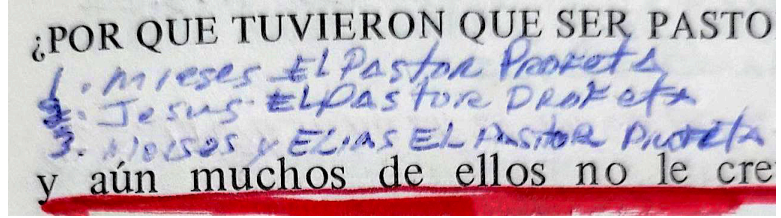 ¿POR QUE TUVIERON QUE SER PASTO
1. Mieses EL PAstor PROFetA
2. Jesus EL PAstor PROFeta
3. Moises y ELias EL PAstor PROFeta
y aún muchos de ellos no le cre